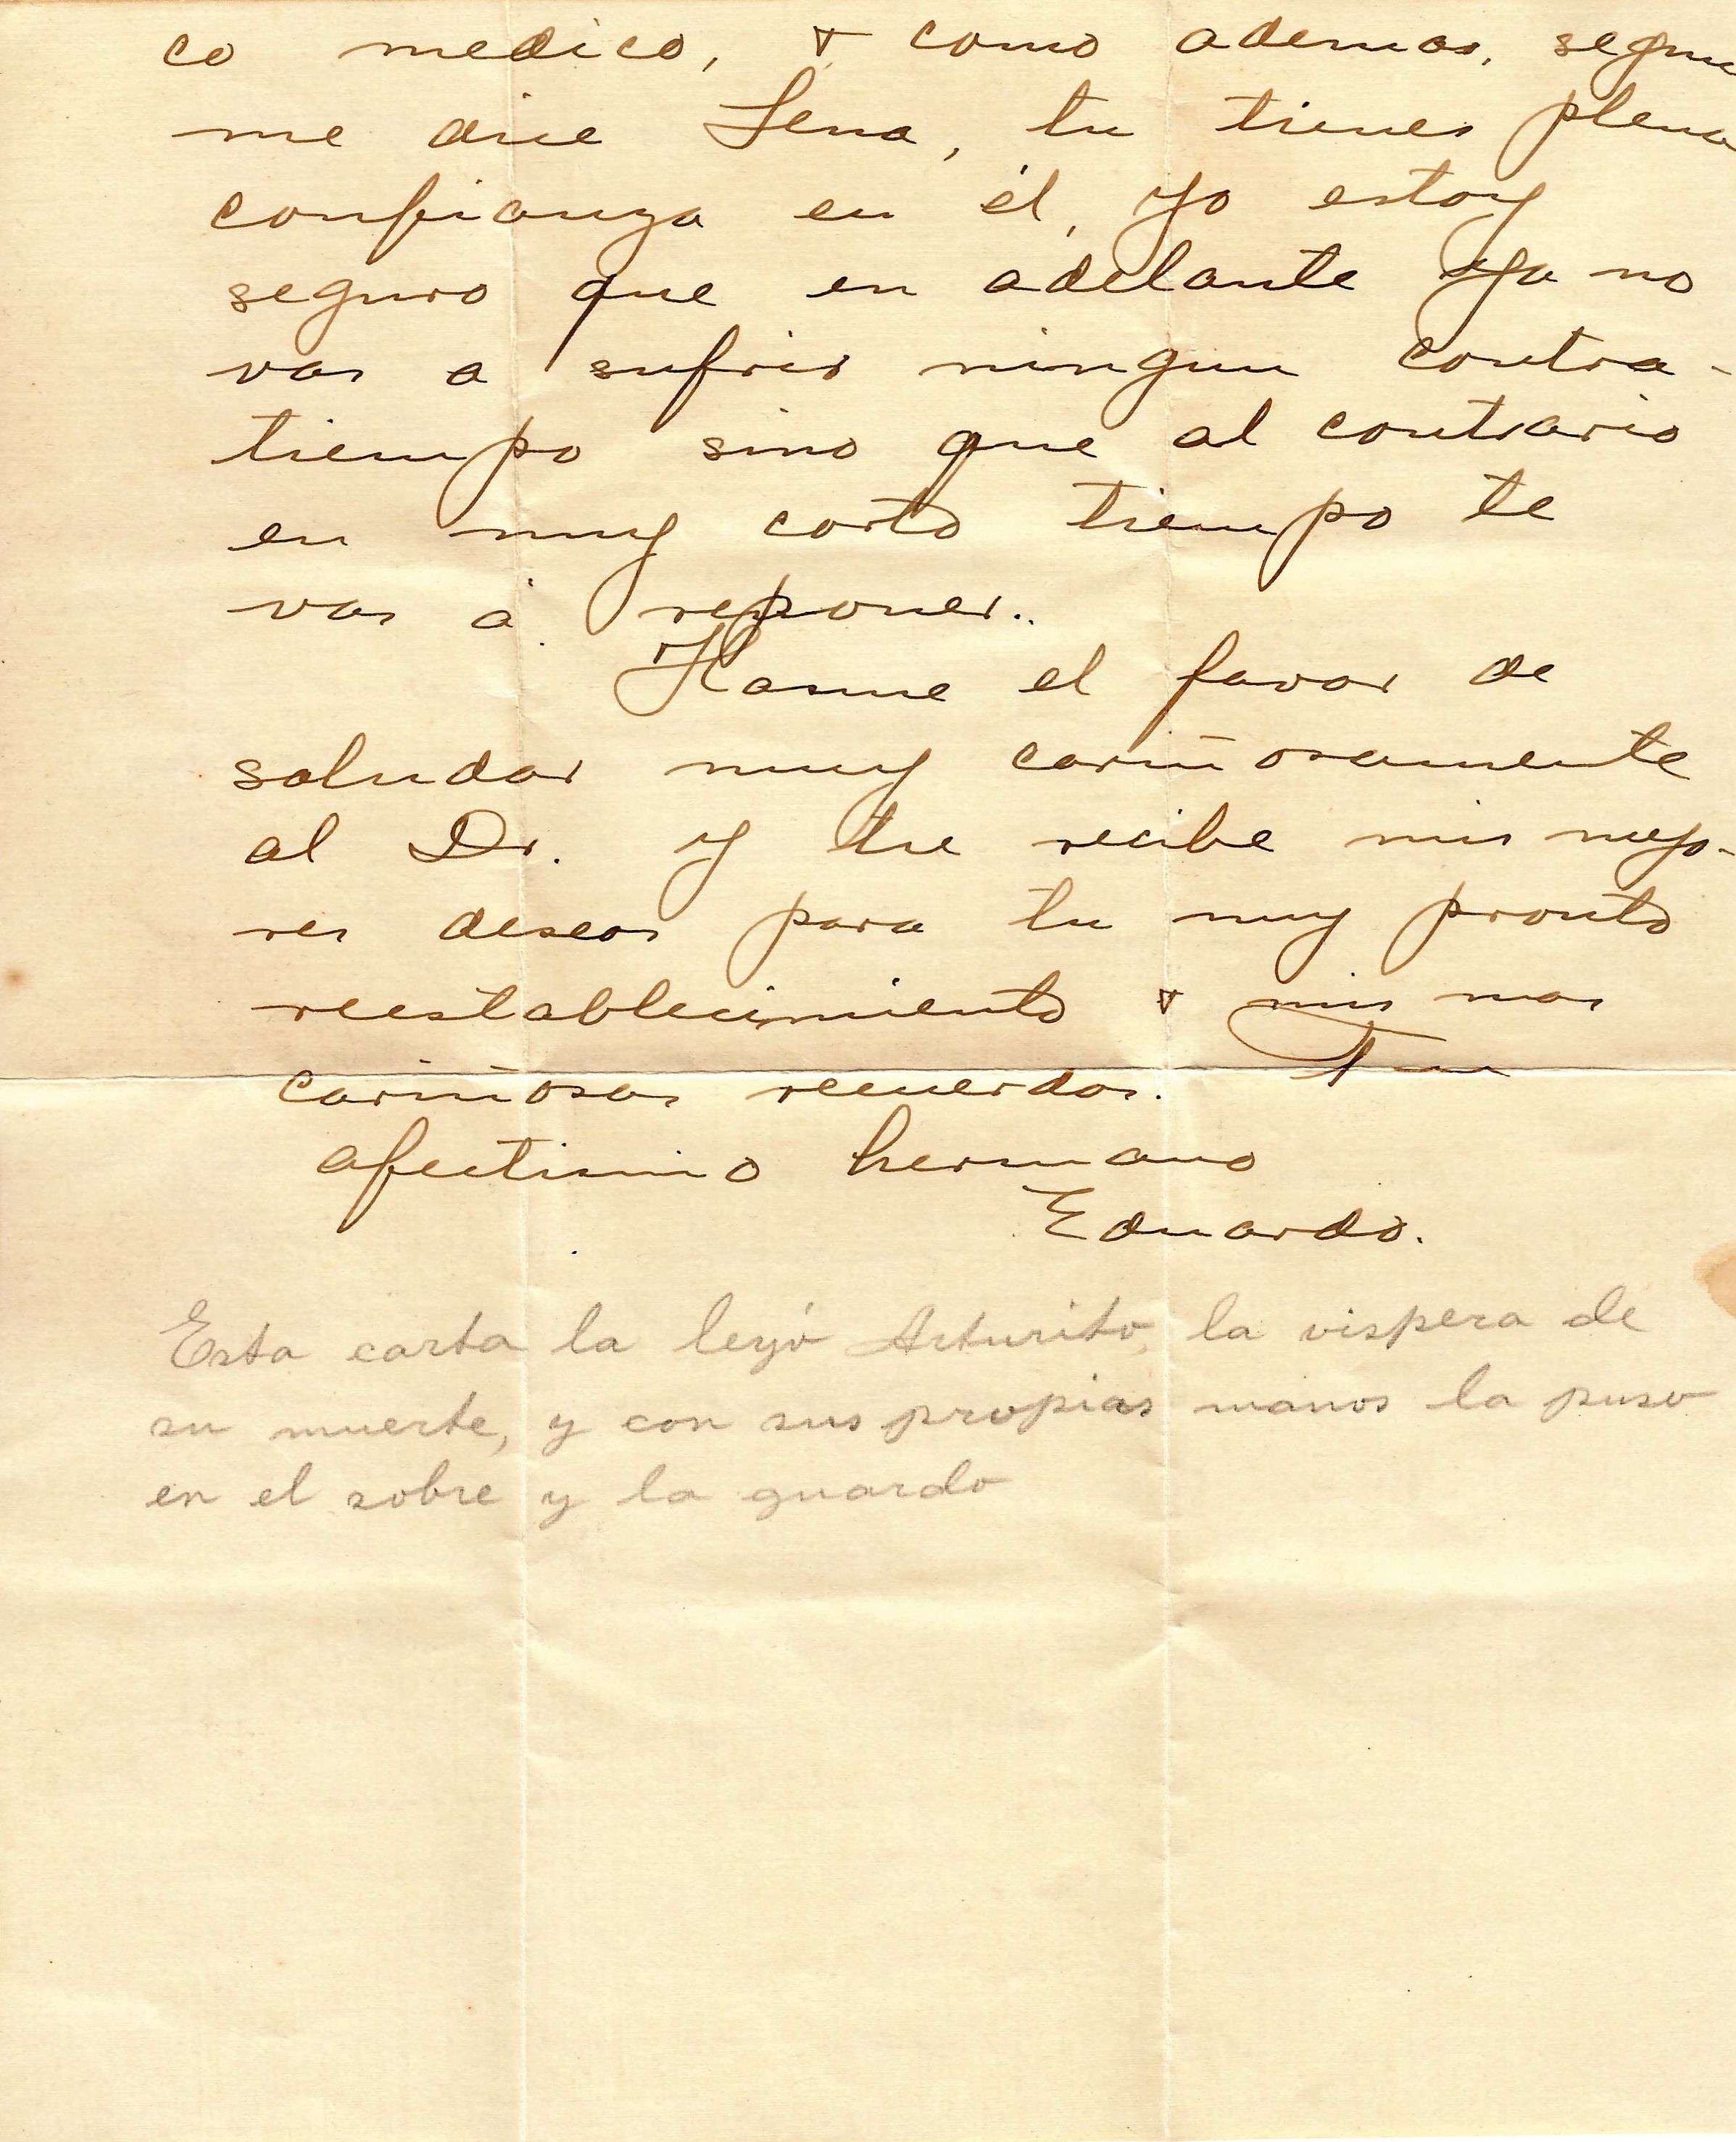 co medico, & como ademas, segun
me dice Lena, tu tienes plena
confianza en él, yo estoy
seguro que en adelante ya no
vas a sufrir ningun contra-
tiempo sino que al contrario
en muy corto tiempo te
vas á reponer..
Hasme el favor de
saludar muy cariñosamente
al Dr. y tu recibe mis mejo-
res deseos para tu muy pronto
reestablecimiento & mis mas
cariñosos recuerdos. Tu
afectisimo hermano
Eduardo.
Esta carta la leyó Arturito, la vispera de
su muerte, y con sus propias manos la puso
en el sobre y la guardo